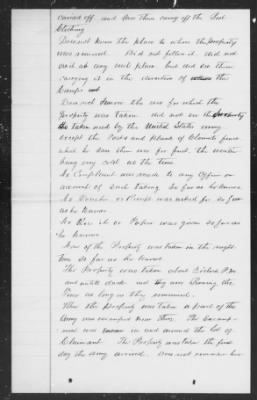 carried off and saw them carry off the
Clothing
Does not know the place to where the property
was removed. Did not follow it and not
visit any such place but did see them
carrying it in the direction of where the
Camps
Does not know the use for which the
property was taken. did not see the property
so taken used by the United States army
except the Posts and plank of Claimants fence
which he saw them use for fuel. the weather
being very cold at the time
No Complaint was made to any Officer on
account of such taking. So far as he knows
No Voucher or Receipt was asked for so far
as he knows
No Receipt or Paper was given so far as
he knows
None of the Property was taken in the night
time so far as he knows
The Property was taken about
and until dark and they were burning the
Fence as long as they remained.
When the property was taken a part of the
Army was encamped near there. The Encamp-
ment was in and around the lot of
Claimant. The Property was taken the first
day the army arrived. Does not remember how